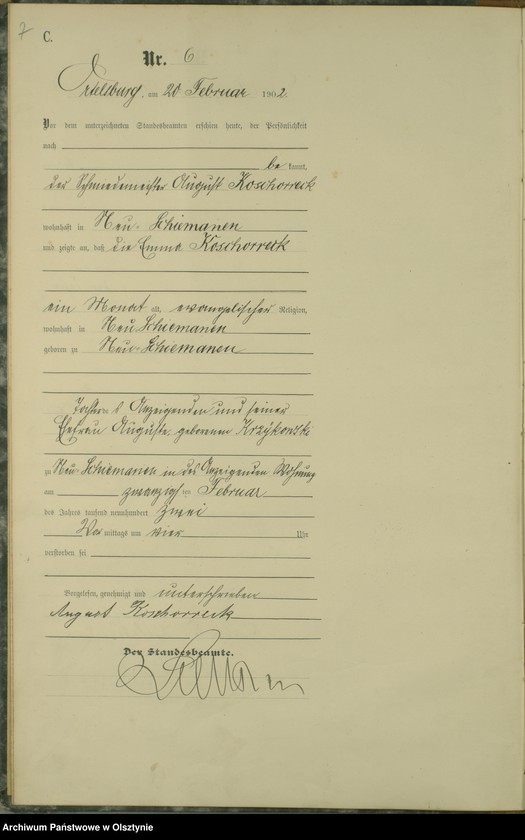 7
C.
Nr. 6
Ortelsburg, am 20 Februar 1902.
Vor dem unterzeichneten Standesbeamten erschien heute, der Persönlichkeit
nach
bekannt,
der Schmiedemeister August Koschorreck
wohnhaft in Neu-Schiemanen
und zeigte an, daß die Emma Koschorreck
ein Monat alt, evangelischer Religion,
wohnhaft in Neu Schiemanen
geboren zu Neu-Schiemanen
Tochter d Anzeigenden und seiner
Ehefrau Auguste geborenen Krzykowski
zu Neu-Schiemanen in des Anzeigenden Wohnung
am zwanzigsten Februar
des Jahres tausend neunhundert zwei
Vormittags um vier Uhr
verstorben sei
Vorgelesen, genehmigt und unterschrieben
August Koschorreck
Der Standesbeamte.
Archiwum Państwowe w Olsztynie